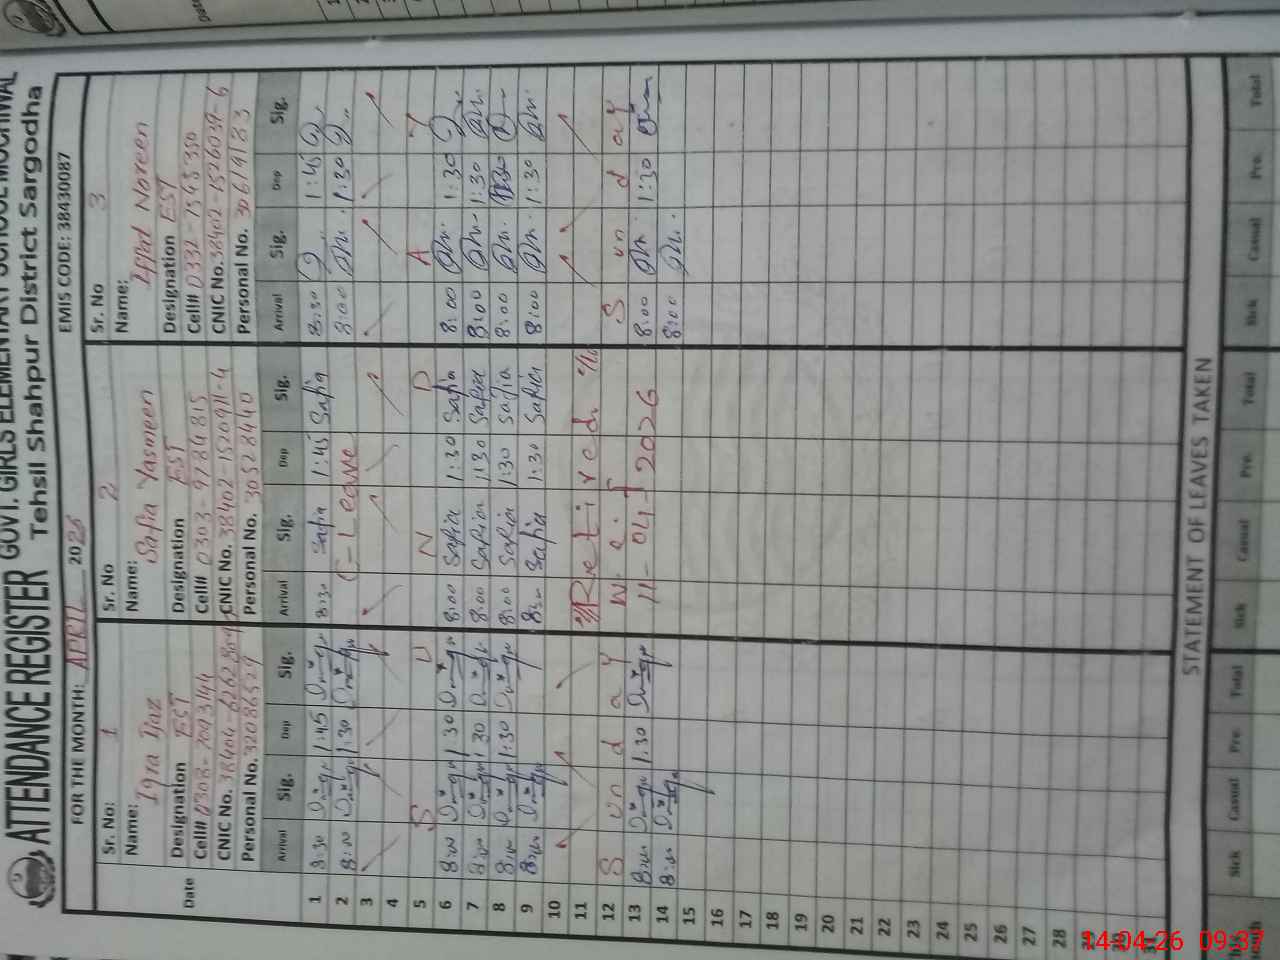 ATTENDANCE REGISTER GOVT. GIRLS ELEMENTARY SCHOOL
Tehsil Shahpur District Sargodha
FOR THE MONTH: APRIL 2026 EMIS CODE: 38430087
Sr. No: 1 Sr. No 2 Sr. No 3
Name: Iqra Ijaz Name: Safia Yasmeen Name: Iffat Noreen
Designation EST Designation EST Designation EST
Cell# 0308-7093144 Cell# 0303-9784815 Cell# 0332-7545350
CNIC No. 38404- CNIC No. 38402-1520911-4 CNIC No. 38402-1526039-6
Personal No. 32086529 Personal No. 30528440 Personal No. 30619183
Date Arrival Sig. Dep Sig. Arrival Sig. Dep Sig. Arrival Sig. Dep Sig.
1 8:30 1:45 8:30 Safia 1:45 Safia 8:30 1:45
2 8:00 1:30 C-Leave 8:00 1:30
3
4
5 S U N D A Y
6 8:00 1:30 8:00 Safia 1:30 Safia 8:00 1:30
7 8:00 1:30 8:00 Safia 1:30 Safia 8:00 1:30
8 8:00 1:30 8:00 Safia 1:30 Safia 8:00 1:30
9 8:00 8:00 Safia 1:30 Safia 8:00 1:30
10
11 Retired
12 S un d a y w.e.f S un d ay
13 8:00 1:30 11-04-2026 8:00 1:30
14 8:00 8:00
15
16
17
18
19
20
21
22
23
24
25
26
27
28
29
30
31
STATEMENT OF LEAVES TAKEN
Sick Casual Pre. Total Sick Casual Pre. Total Sick Casual Pre. Total
14-04-26 09:37